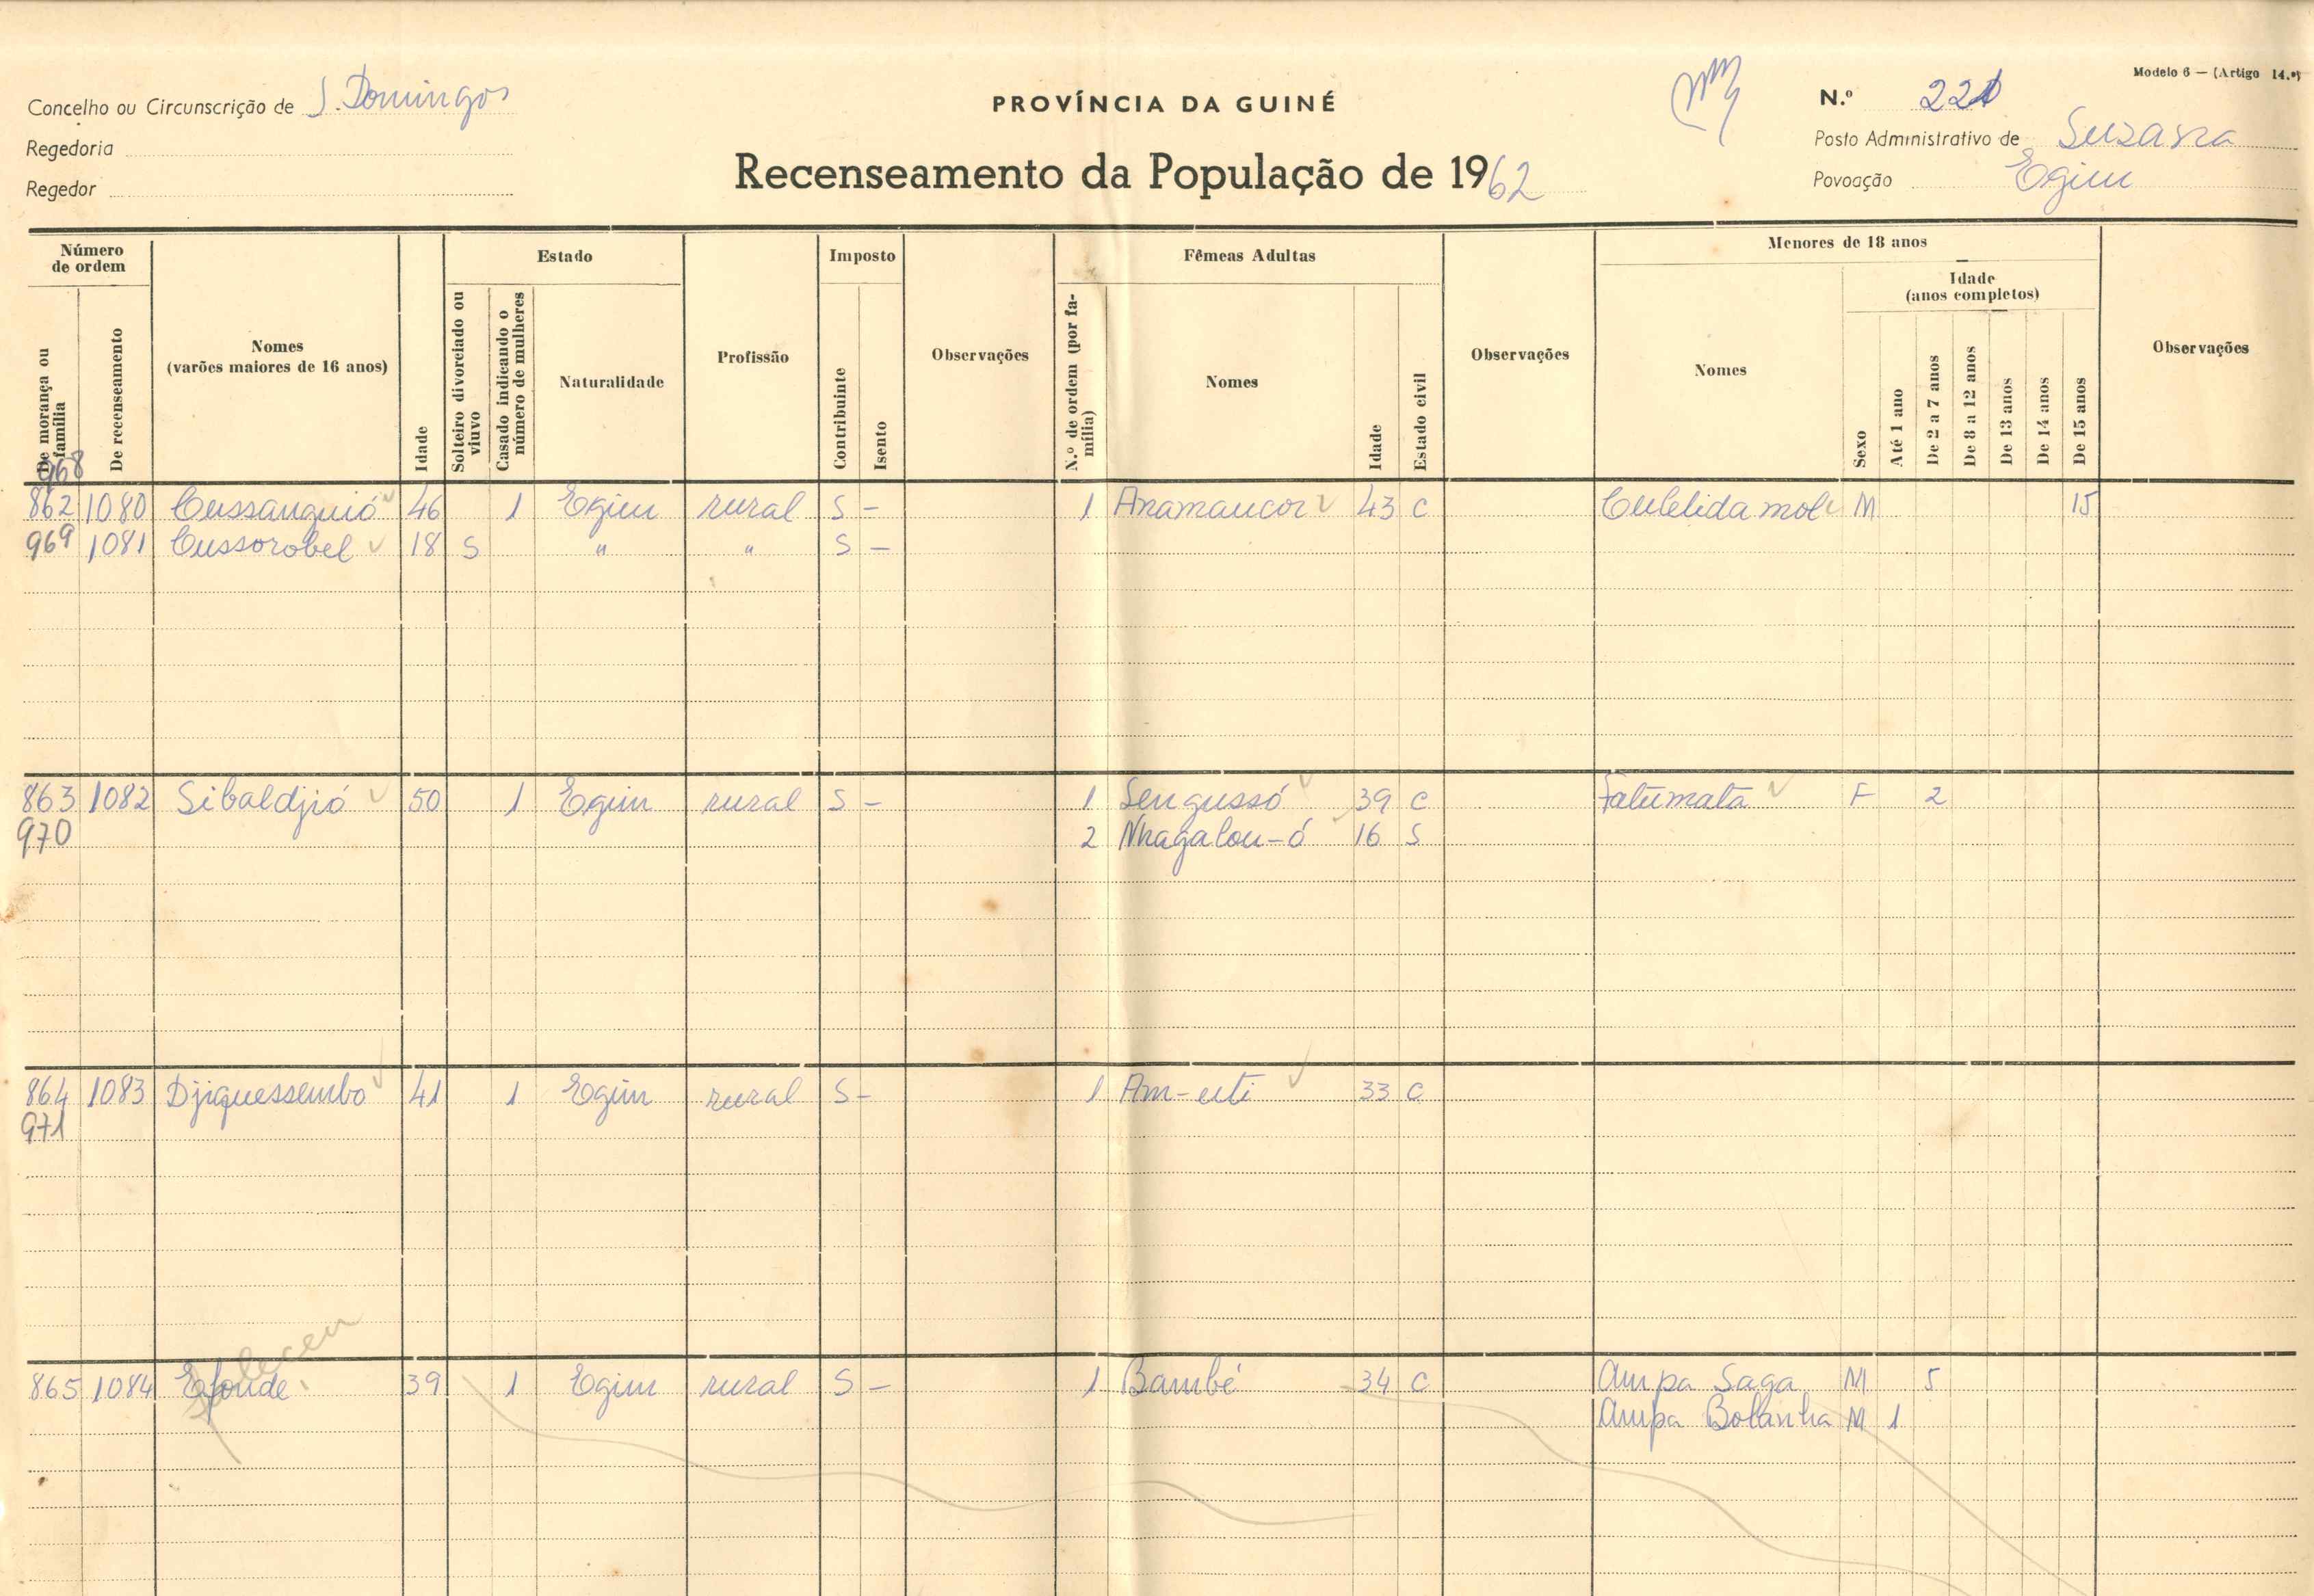 Modelo 6 — (Artigo 14.º)
Concelho ou Circunscrição de S. Domingos
PROVÍNCIA DA GUINÉ
N.º 221
Regedoria
Posto Administrativo de Suzana
Regedor
Recenseamento da População de 1962
Povoação Egim
Número de ordem
Estado
Imposto
Fêmeas Adultas
Menores de 18 anos
Idade (anos completos)
De morança ou família
De recenseamento
Nomes (varões maiores de 16 anos)
Idade
Solteiro divorciado ou viuvo
Casado indicando o número de mulheres
Naturalidade
Profissão
Contribuinte
Isento
Observações
N.º de ordem (por família)
Nomes
Idade
Estado civil
Observações
Nomes
Sexo
Até 1 ano
De 2 a 7 anos
De 8 a 12 anos
De 13 anos
De 14 anos
De 15 anos
Observações
968
862 1080 Cussanguió 46 1 Egim rural S - 1 Anamancor 43 C M 15
969 1081 Cussorobel 18 S " " S -
863 1082 Sibaldjió 50 1 Egim rural S - 1 Sengussó 39 C Fatumata F 2
970 2 Nhagalou-ó 16 S
864 1083 Djiquessembo 41 1 Egim rural S - 1 Am-eiti 33 C
971
Faleceu
865 1084 Efonde 39 1 Egim rural S - 1 Bambé 34 C Ampa Saga M 5
Ampa Bolanha M 1